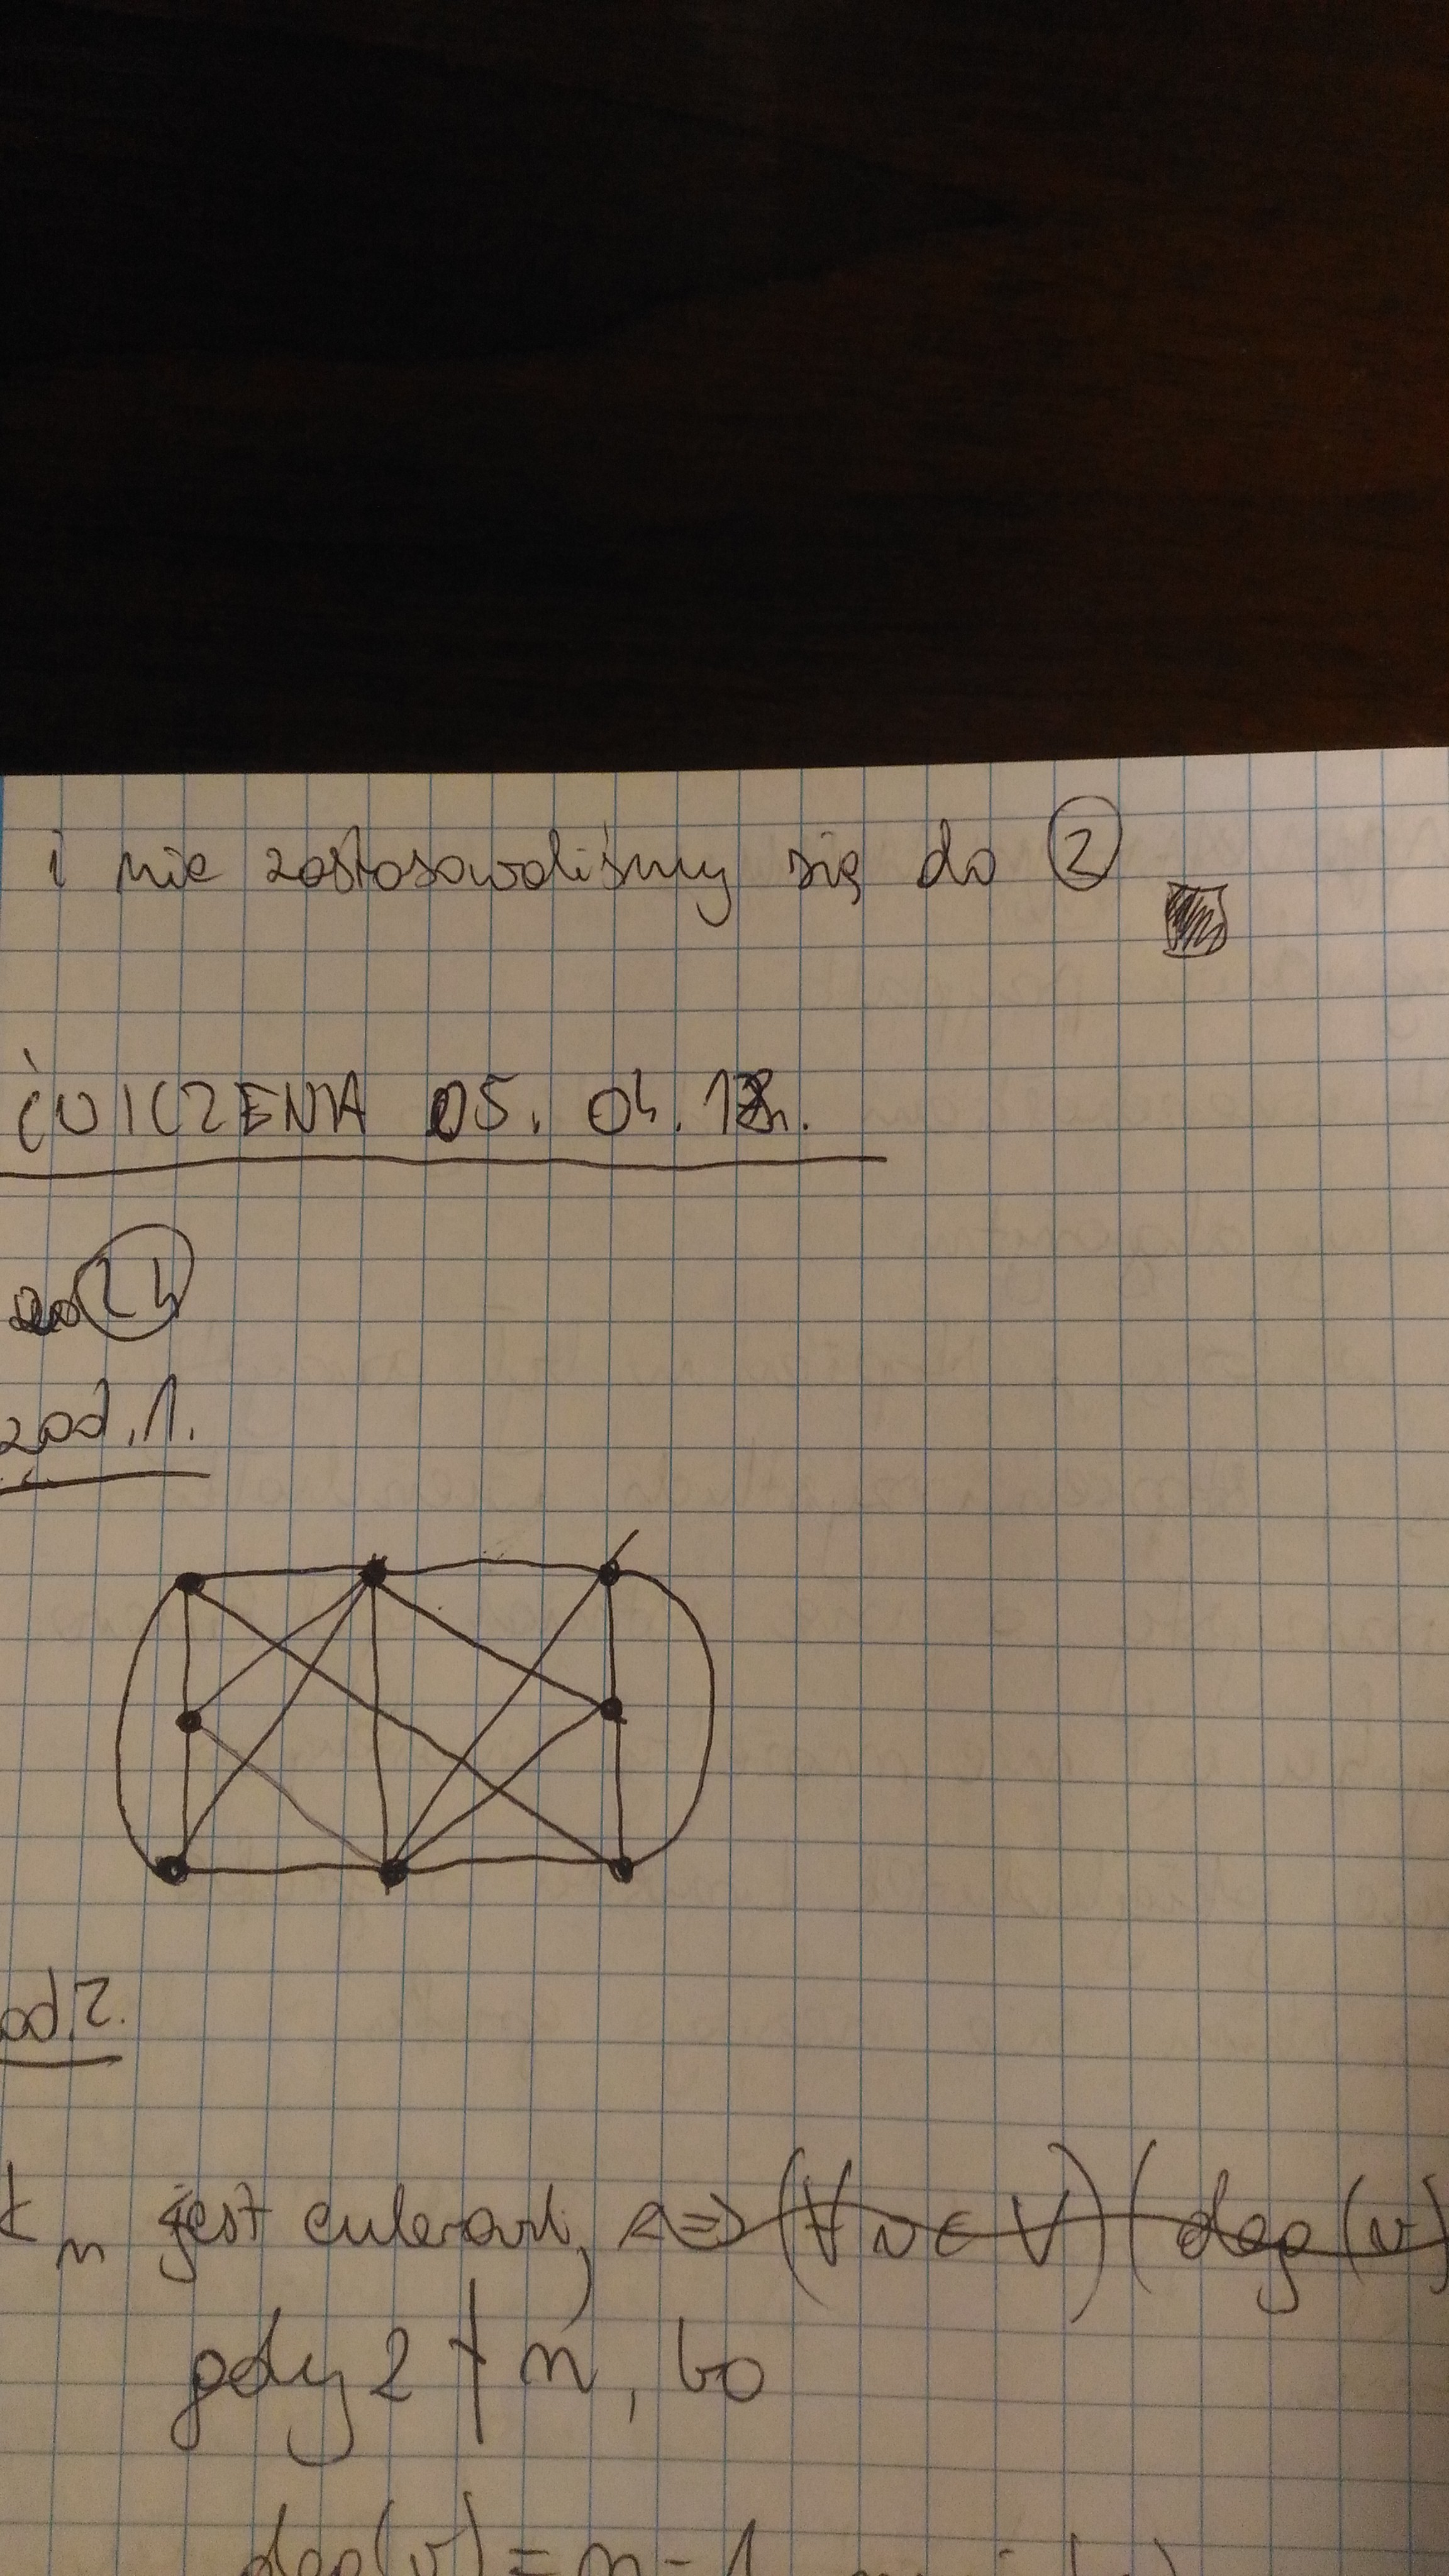 i nie zastosowaliśmy się do ②
ĆWICZENIA 05. 04.
24
zad. 1.
ad. 2.
n jest eulerowski, <=> (∀ v ∈ V) (deg(v)
gdy 2 ∤ n, bo
deg(v) = n - 1